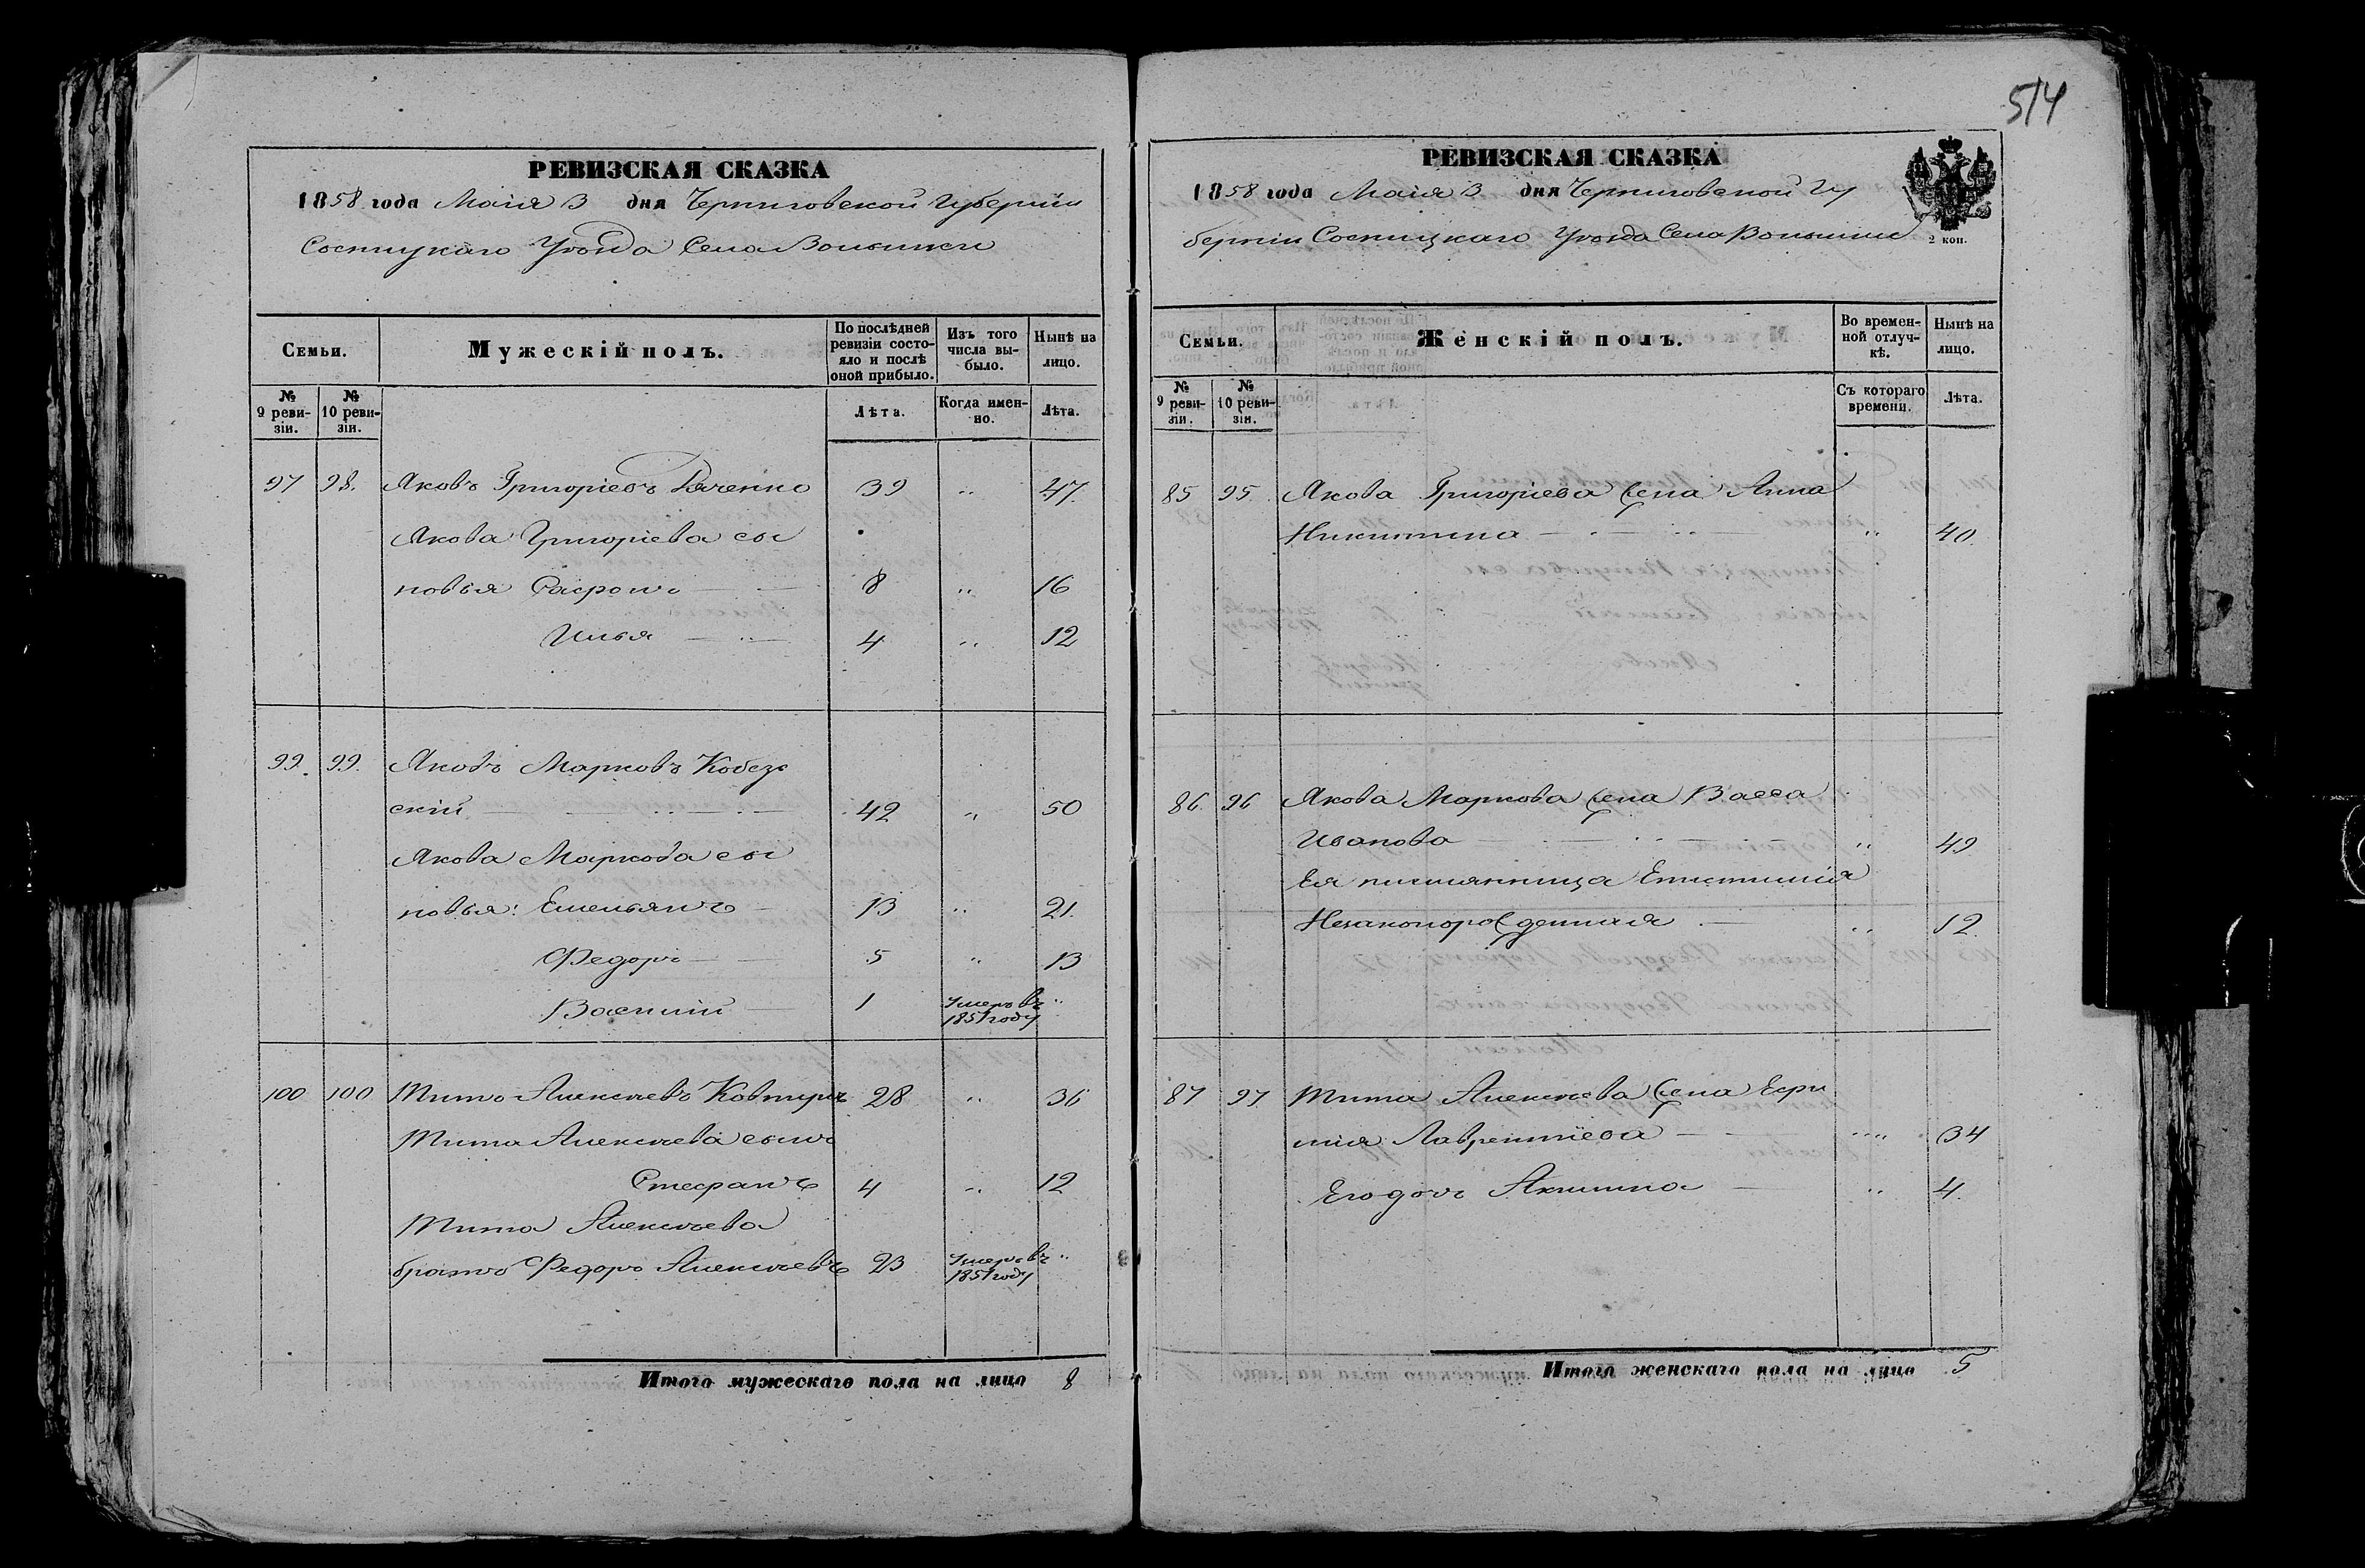 514
РЕВИЗСКАЯ СКАЗКА
1858 года Маія 3 дня Черниговской Губерніи
Сосницкаго Уѣзда Села Волынки
Семьи.
Мужескій полъ.
По послѣдней ревизіи состояло и послѣ оной прибыло.
Изъ того числа выбыло.
Нынѣ на лицо.
№ 9 ревизіи.
№ 10 ревизіи.
Лѣта.
Когда именно.
Лѣта.
97 98. Яковъ Григоріевъ 39 „ 47.
Якова Григоріева сы
новья Сафронъ 8 „ 16
Илья 4 „ 12
99. 99. Яковъ Марковъ Кобез
скій 42 „ 50
Якова Маркова сы
новья: Емельянъ 13 „ 21.
Федоръ 5 „ 13
Василій 1 Умеръ въ 1851 году „
100 100 Титъ Алексѣевъ Ковтунъ 28 „ 36
Тита Алексѣева сынъ
Стефанъ 4 „ 12
Тита Алексѣева
братъ Федоръ Алексѣевъ 23 Умеръ въ 1851 году „
Итого мужескаго пола на лицо 8
РЕВИЗСКАЯ СКАЗКА
1858 года Маія 3 дня Черниговской Гу
берніи Сосницкаго Уѣзда Села Волынки
2 коп.
Семьи.
Женскій полъ.
Во временной отлучкѣ.
Нынѣ на лицо.
№ 9 ревизіи.
№ 10 ревизіи.
Съ котораго времени.
Лѣта.
85 95. Якова Григоріева жена Анна
Никитина „ 40.
86. 96 Якова Маркова жена Васса
Иванова „ 49
Ея племянница Епистимія
Незаконорожденная „ 12.
87 97. Тита Алексѣева жена Ефи
мія Лаврентіева „ „ 34
Его дочь Акилина „ 4.
Итого женскаго пола на лицо 5